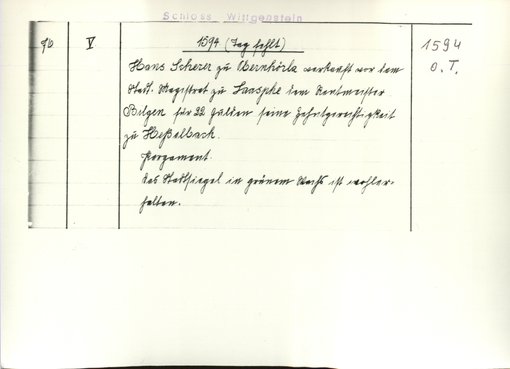 Schloss Wittgenstein
96 V 1594 (Tag fehlt) 1594
o.T.
Hans Scherer zu Obernhörla verkauft vor dem
Stadt. Magistrat zu Laasphe dem Rentmeister
Bilgen für 22 Gulden seine Zehntgerechtigkeit
zu Heßelbach.
Pergament.
Das Stadtsiegel in grünem Wachs ist wohler-
halten.